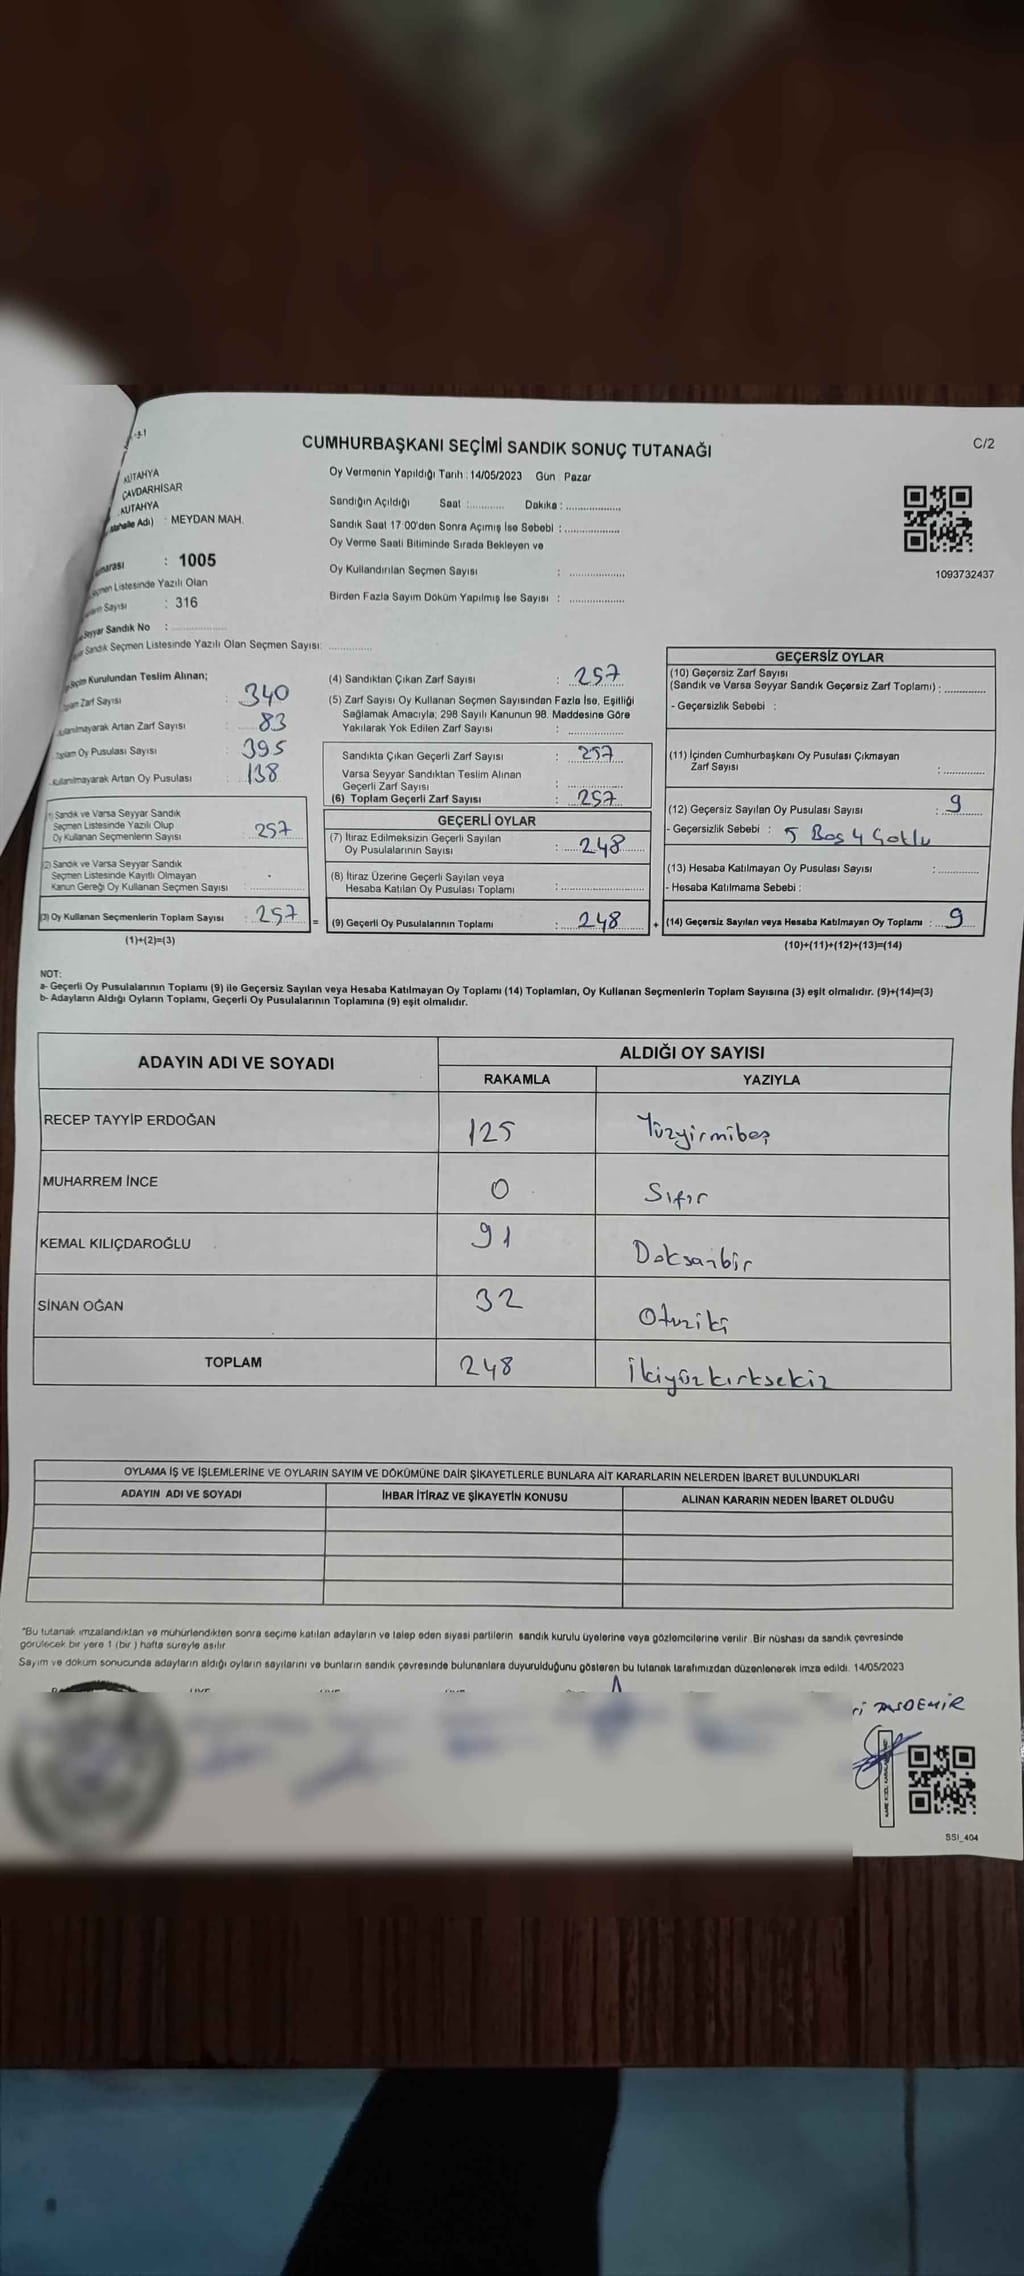 CUMHURBAŞKANI SEÇİMİ SANDIK SONUÇ TUTANAĞI
C/2
KUTAHYA
ÇAVDARHİSAR
KUTAHYA
Mahalle Adı) : MEYDAN MAH.
: 1005
Listesinde Yazılı Olan
Sayısı : 316
Seyyar Sandık No :
Sandık Seçmen Listesinde Yazılı Olan Seçmen Sayısı:
Oy Vermenin Yapıldığı Tarih : 14/05/2023 Gün : Pazar
Sandığın Açıldığı Saat : Dakika :
Sandık Saat 17:00'den Sonra Açımış İse Sebebi :
Oy Verme Saati Bitiminde Sırada Bekleyen ve
Oy Kullandırılan Seçmen Sayısı :
Birden Fazla Sayım Döküm Yapılmış İse Sayısı :
1093732437
Seçim Kurulundan Teslim Alınan;
Zarf Sayısı : 340
Artan Zarf Sayısı : 83
Oy Pusulası Sayısı : 395
Artan Oy Pusulası : 138
1) Sandık ve Varsa Seyyar Sandık
Seçmen Listesinde Yazılı Olup
Oy Kullanan Seçmenlerin Sayısı : 257
(2) Sandık ve Varsa Seyyar Sandık
Seçmen Listesinde Kayıtlı Olmayan
Kanun Gereği Oy Kullanan Seçmen Sayısı :
(3) Oy Kullanan Seçmenlerin Toplam Sayısı : 257 =
(1)+(2)=(3)
(4) Sandıktan Çıkan Zarf Sayısı : 257
(5) Zarf Sayısı Oy Kullanan Seçmen Sayısından Fazla İse, Eşitliği
Sağlamak Amacıyla; 298 Sayılı Kanunun 98. Maddesine Göre
Yakılarak Yok Edilen Zarf Sayısı :
Sandıkta Çıkan Geçerli Zarf Sayısı : 257
Varsa Seyyar Sandıktan Teslim Alınan
Geçerli Zarf Sayısı :
(6) Toplam Geçerli Zarf Sayısı : 257
GEÇERLİ OYLAR
(7) İtiraz Edilmeksizin Geçerli Sayılan
Oy Pusulalarının Sayısı : 248
(8) İtiraz Üzerine Geçerli Sayılan veya
Hesaba Katılan Oy Pusulası Toplamı :
(9) Geçerli Oy Pusulalarının Toplamı : 248 +
GEÇERSİZ OYLAR
(10) Geçersiz Zarf Sayısı
(Sandık ve Varsa Seyyar Sandık Geçersiz Zarf Toplamı) :
- Geçersizlik Sebebi :
(11) İçinden Cumhurbaşkanı Oy Pusulası Çıkmayan
Zarf Sayısı :
(12) Geçersiz Sayılan Oy Pusulası Sayısı : 9
- Geçersizlik Sebebi : 5 Boş 4 Çoklu
(13) Hesaba Katılmayan Oy Pusulası Sayısı :
- Hesaba Katılmama Sebebi :
(14) Geçersiz Sayılan veya Hesaba Katılmayan Oy Toplamı : 9
(10)+(11)+(12)+(13)=(14)
NOT:
a- Geçerli Oy Pusulalarının Toplamı (9) ile Geçersiz Sayılan veya Hesaba Katılmayan Oy Toplamı (14) Toplamları, Oy Kullanan Seçmenlerin Toplam Sayısına (3) eşit olmalıdır. (9)+(14)=(3)
b- Adayların Aldığı Oyların Toplamı, Geçerli Oy Pusulalarının Toplamına (9) eşit olmalıdır.
ADAYIN ADI VE SOYADI
ALDIĞI OY SAYISI
RAKAMLA YAZIYLA
RECEP TAYYİP ERDOĞAN 125 Yüzyirmibeş
MUHARREM İNCE 0 Sıfır
KEMAL KILIÇDAROĞLU 91 Doksanbir
SİNAN OĞAN 32 Otuziki
TOPLAM 248 İkiyüzkırksekiz
OYLAMA İŞ VE İŞLEMLERİNE VE OYLARIN SAYIM VE DÖKÜMÜNE DAİR ŞİKAYETLERLE BUNLARA AİT KARARLARIN NELERDEN İBARET BULUNDUKLARI
ADAYIN ADI VE SOYADI İHBAR İTİRAZ VE ŞİKAYETİN KONUSU ALINAN KARARIN NEDEN İBARET OLDUĞU
"Bu tutanak imzalandıktan ve mühürlendikten sonra seçime katılan adayların ve talep eden siyasi partilerin sandık kurulu üyelerine veya gözlemcilerine verilir. Bir nüshası da sandık çevresinde
görülecek bir yere 1 (bir ) hafta süreyle asılır
Sayım ve döküm sonucunda adayların aldığı oyların sayılarını ve bunların sandık çevresinde bulunanlara duyurulduğunu gösteren bu tutanak tarafımızdan düzenlenerek imza edildi. 14/05/2023
SSI_404